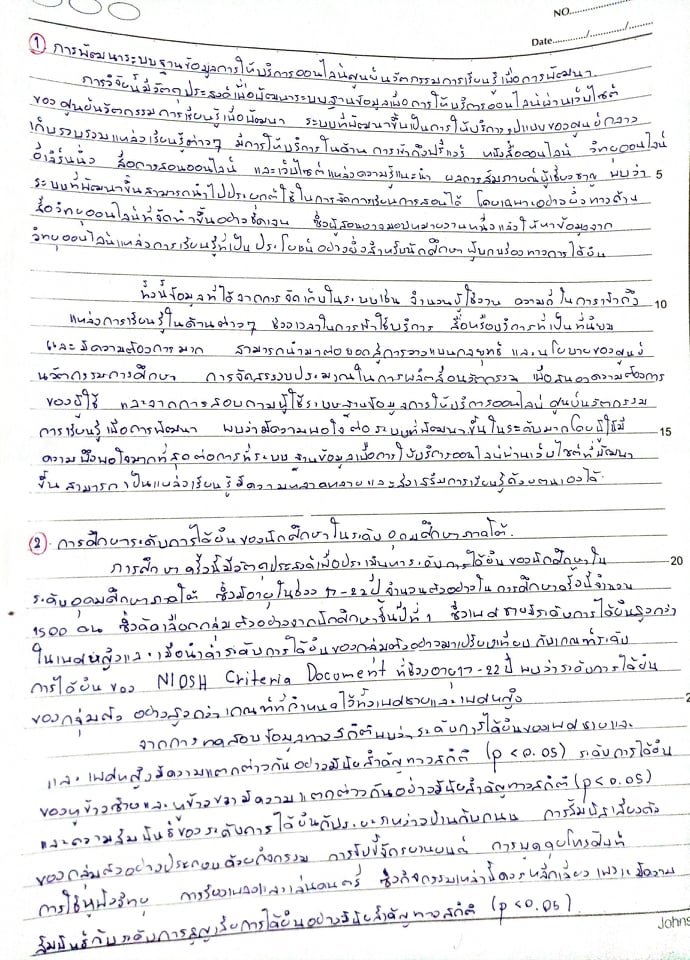 NO.
Date
① การพัฒนาระบบฐานข้อมูลการให้บริการออนไลน์ศูนย์นวัตกรรมการเรียนรู้เพื่อการพัฒนา.
การวิจัยนี้มีวัตถุประสงค์เพื่อพัฒนาระบบฐานข้อมูลเพื่อการให้บริการออนไลน์ผ่านเว็บไซต์
ของศูนย์นวัตกรรมการเรียนรู้เพื่อพัฒนา ระบบที่พัฒนาขึ้นเป็นการให้บริการรูปแบบของศูนย์กลาง
เก็บรวบรวมแหล่งเรียนรู้ต่างๆ มีการให้บริการในด้าน การเข้าถึงฟรีแวร์ หนังสือออนไลน์ วิทยุออนไลน์
อีเลิร์นนิ่ง สื่อการสอนออนไลน์ และเว็ปไซต์แหล่งความรู้แนะนำ ผลการสัมภาษณ์ผู้เชี่ยวชาญ พบว่า 5
ระบบที่พัฒนาขึ้นสามารถนำไปประยุกต์ใช้ในการจัดการเรียนการสอนได้ โดยเฉพาะอย่างยิ่งทางด้าน
สื่อวิทยุออนไลน์ที่จัดทำขึ้นอย่างชัดเจน ซึ่งผู้สอนอาจมอบหมายงานหนึ่งแล้วให้หาข้อมูลจาก
วิทยุออนไลน์แหล่งการเรียนรู้ที่เป็นประโยชน์อย่างยิ่งสำหรับนักศึกษาผู้บกพร่องทางการได้ยิน
ทั้งนี้ข้อมูลที่ได้จากการจัดเก็บในระบบเช่น จำนวนผู้ใช้งาน ความถี่ในการเข้าถึง 10
แหล่งการเรียนรู้ในด้านต่างๆ ช่วงเวลาในการเข้าใช้บริการ สื่อหรือบริการที่เป็นที่นิยม
และมีความต้องการมาก สามารถนำมาต่อยอดสู่การวางแผนกลยุทธ์และนโยบายของศูนย์
นวัตกรรมการศึกษา การจัดสรรงบประมาณในการผลิตสื่อนวัตกรรม เพื่อสนองความต้องการ
ของผู้ใช้ และจากการสอบถามผู้ใช้ระบบฐานข้อมูลการให้บริการออนไลน์ ศูนย์นวัตกรรม
การเรียนรู้เพื่อการพัฒนา พบว่ามีความพอใจต่อระบบที่พัฒนาขึ้นในระดับมากโดยผู้ใช้มี 15
ความพึงพอใจมากที่สุดต่อการที่ระบบฐานข้อมูลเพื่อการให้บริการออนไลน์ผ่านเว็บไซต์ที่พัฒนา
ขึ้นสามารถเป็นแหล่งเรียนรู้มีความหลากหลายและส่งเสริมการเรียนรู้ด้วยตนเองได้.
② การศึกษาระดับการได้ยินของนักศึกษาในระดับอุดมศึกษาภาคใต้.
การศึกษาครั้งนี้มีวัตถุประสงค์เพื่อประเมินหาระดับการได้ยินของนักศึกษาใน 20
ระดับอุดมศึกษาภาคใต้ ซึ่งมีอายุในช่วง 17-22 ปี จำนวนตัวอย่างในการศึกษาครั้งนี้จำนวน
1500 คน ซึ่งคัดเลือกกลุ่มตัวอย่างจากนักศึกษาชั้นปีที่ 1 ซึ่งเพศชายมีระดับการได้ยินสูงกว่า
ในเพศหญิงและเมื่อนำค่าระดับการได้ยินของกลุ่มตัวอย่างมาเปรียบเทียบกับเกณฑ์ระดับ
การได้ยินของ NIOSH Criteria Document ที่ช่วงอายุ 17-22 ปี พบว่าระดับการได้ยิน
ของกลุ่มตัวอย่างสูงกว่าเกณฑ์ที่กำหนดไว้ทั้งเพศชายและเพศหญิง 2
จากการทดสอบข้อมูลทางสถิติพบว่าระดับการได้ยินของเพศชายและ
และเพศหญิงมีความแตกต่างกันอย่างมีนัยสำคัญทางสถิติ (p < 0.05) ระดับการได้ยิน
ของหูข้างซ้ายและหูข้างขวามีความแตกต่างกันอย่างมีนัยสำคัญทางสถิติ (p < 0.05)
และความสัมพันธ์ของระดับการได้ยินกับระยะห่างบ้านกับถนน การสัมผัสเสียงดัง
ของกลุ่มตัวอย่างประกอบด้วยกิจกรรม การขับขี่จักรยานยนต์ การพูดคุยโทรศัพท์
การใช้หูฟังวิทยุ การร้องเพลงและเล่นดนตรี ซึ่งกิจกรรมเหล่านี้ควรหลีกเลี่ยงเพราะมีความ
สัมพันธ์กับระดับการสูญเสียการได้ยินอย่างมีนัยสำคัญทางสถิติ (p < 0.05)
Johns